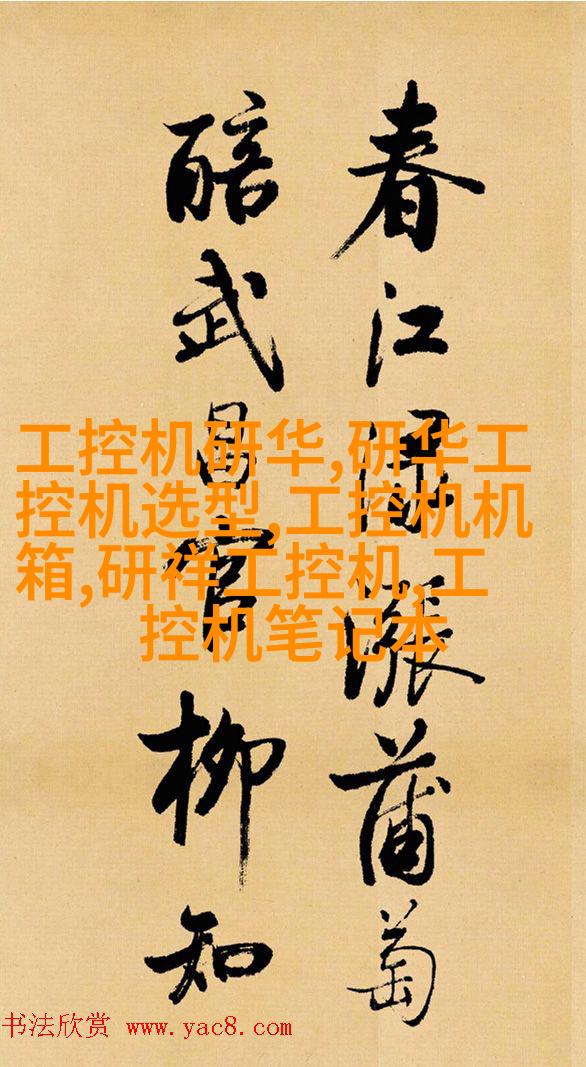 春江淥漲蒲萄
醅武昌官柳知
工控机研华,研华工
控机选型,工控机机
箱,研祥工控机,工
控机笔记本
书法欣赏 www.yac8.com